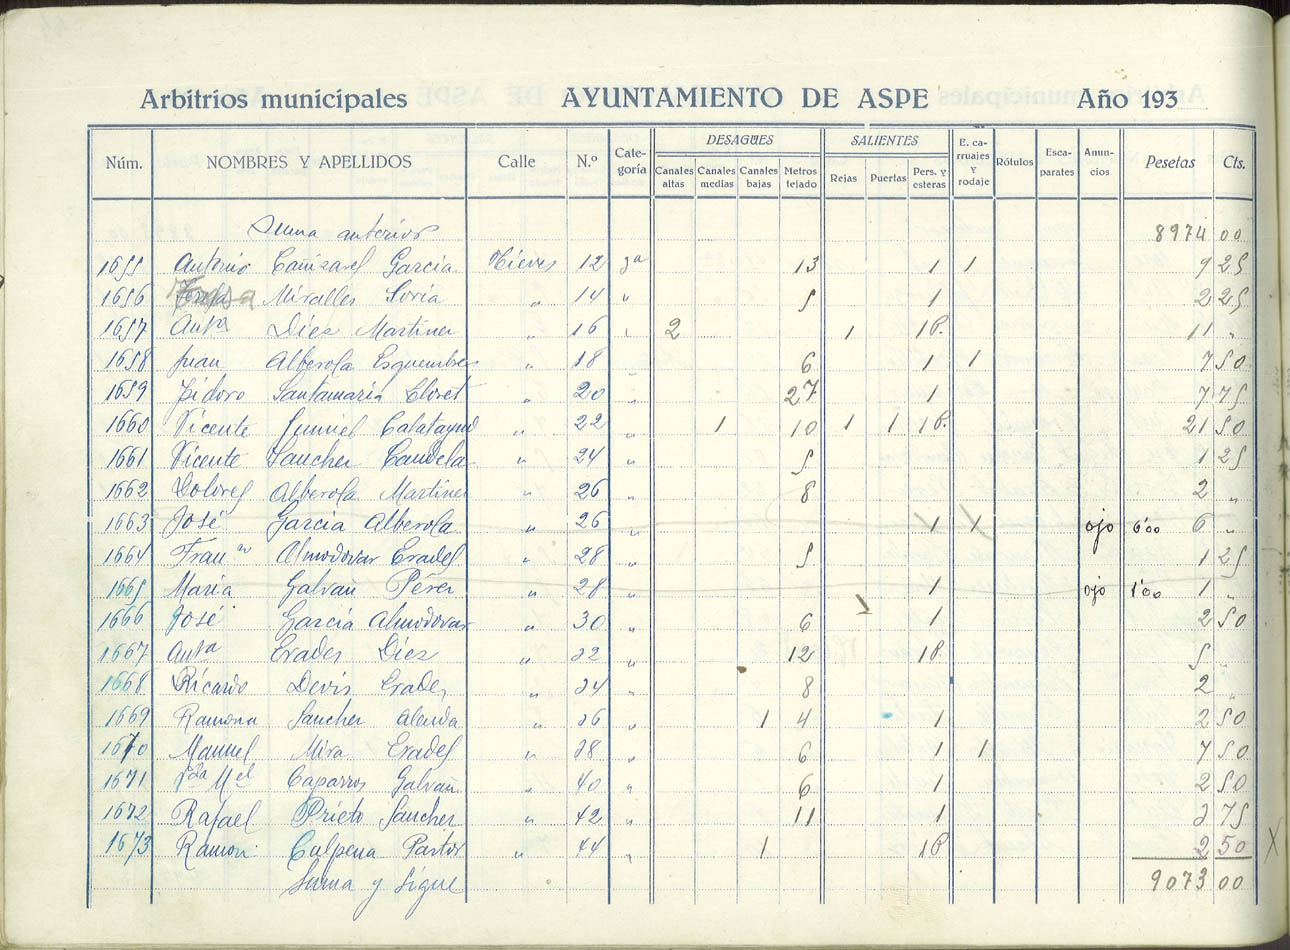 Arbitrios municipales AYUNTAMIENTO DE ASPE Año 193
Núm. NOMBRES Y APELLIDOS Calle N.º Cate-goría DESAGÜES Canales altas Canales medias Canales bajas Metros tejado SALIENTES Rejas Puertas Pers. y esteras E. ca-rruajes y rodaje Rótulos Esca-parates Anun-cios Pesetas Cts.
Suma anterior 8974 00
1655 Antonio Cañizares García Nieves 12 3ª 13 1 1 9 25
1656 Miralles Soria " 14 " 5 1 2 25
1657 Antª Díez Martinez " 16 " 2 1 1P. 11 "
1658 Juan Alberola Esquembre " 18 " 6 1 1 7 50
1659 Isidoro Santamaría Lloret " 20 " 27 1 7 75
1660 Vicente Jumiel Calatayud " 22 " 1 10 1 1 1P. 21 50
1661 Vicente Sancher Candela " 24 " 5 1 25
1662 Dolores Alberola Martinez " 26 " 8 2 "
1663 José García Alberola " 26 " 1 1 ojo 6'00 6 "
1664 Franco Almodovar Erades " 28 " 5 1 25
1665 María Galvañ Pérez " 28 " 1 ojo 1'00 1 "
1666 José García Almodovar " 30 " 6 1 2 50
1667 Antª Erades Díez " 32 " 12 1P. 5 "
1668 Ricardo Devis Erades " 34 " 8 2 "
1669 Ramona Sancher Alenda " 36 " 1 4 1 2 50
1670 Manuel Mira Erades " 38 " 6 1 1 7 50
1671 Vda Mel Caparros Galvañ " 40 " 6 1 2 50
1672 Rafael Prieto Sancher " 42 " 11 1 3 75
1673 Ramon Culpena Pastor " 44 " 1 1P 2 50
Suma y sigue 9073 00